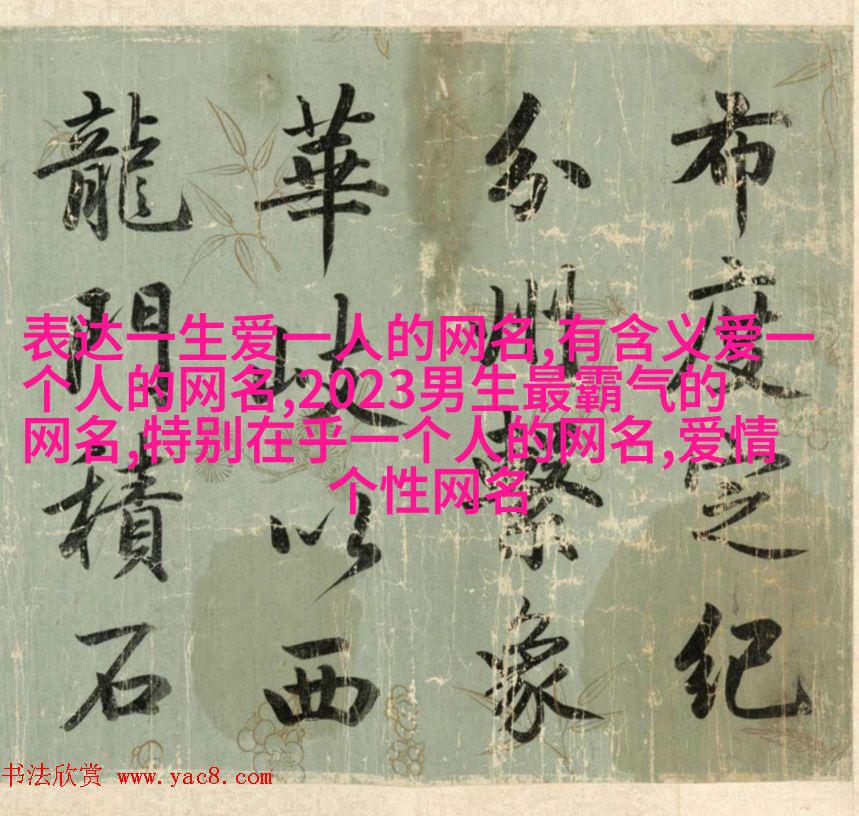 布度定紀
分州繫象
華岐以西
龍門積石
表达一生爱一人的网名,有含义爱一
个人的网名,2023男生最霸气的
网名,特别在乎一个人的网名,爱情
个性网名
书法欣赏 www.yac8.com